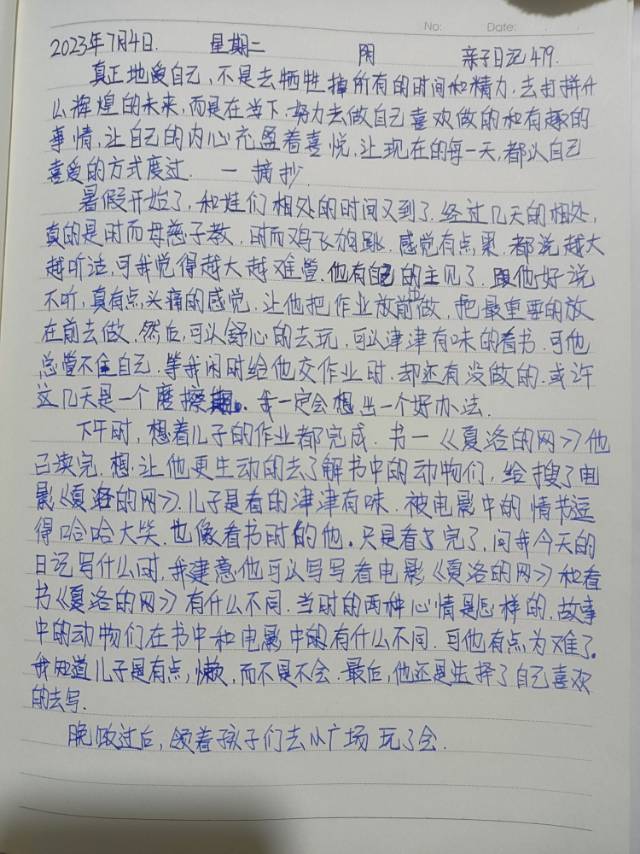 No:  Date:
2023年7月4日. 星期二 阴 亲子日记479.
真正地爱自己,不是去牺牲掉所有的时间和精力.去打拼什
么辉煌的未来,而是在当下.努力去做自己喜欢做的和有趣的
事情,让自己的内心充盈着喜悦,让现在的每一天,都以自己
喜爱的方式度过. 一 摘抄.
暑假开始了,和娃们相处的时间又到了.经过几天的相处,
真的是时而母慈子教,时而鸡飞狗跳.感觉有点累.都说越大
越听话,可我觉得越大越难管.他有自己的主见了.跟他好说
不听,真有点头痛的感觉.让他把作业放前做,把最重要的放
在前去做.然后,可以舒心的去玩.可以津津有味的看书.可他
总管不住自己.等我闲时给他交作业时.却还有没做的.或许
这几天是一个磨擦期.我一定会想出一个好办法.
下午时,想着儿子的作业都完成.书一《夏洛的网》他
已读完.想让他更生动的去了解书中的动物们,给搜了电
影《夏洛的网》.儿子是看的津津有味.被电影中的情节逗
得哈哈大笑.也像看书时的他.只是看了完了,问我今天的
日记写什么时,我建意他可以写写看电影《夏洛的网》和看
书《夏洛的网》有什么不同.当时的两种心情是怎样的,故事
中的动物们在书中和电影中的有什么不同.可他有点为难了.
我知道儿子是有点,懒,而不是不会.最后,他还是选择了自己喜欢
的去写.
晚饭过后,领着孩子们去小广场玩了会.